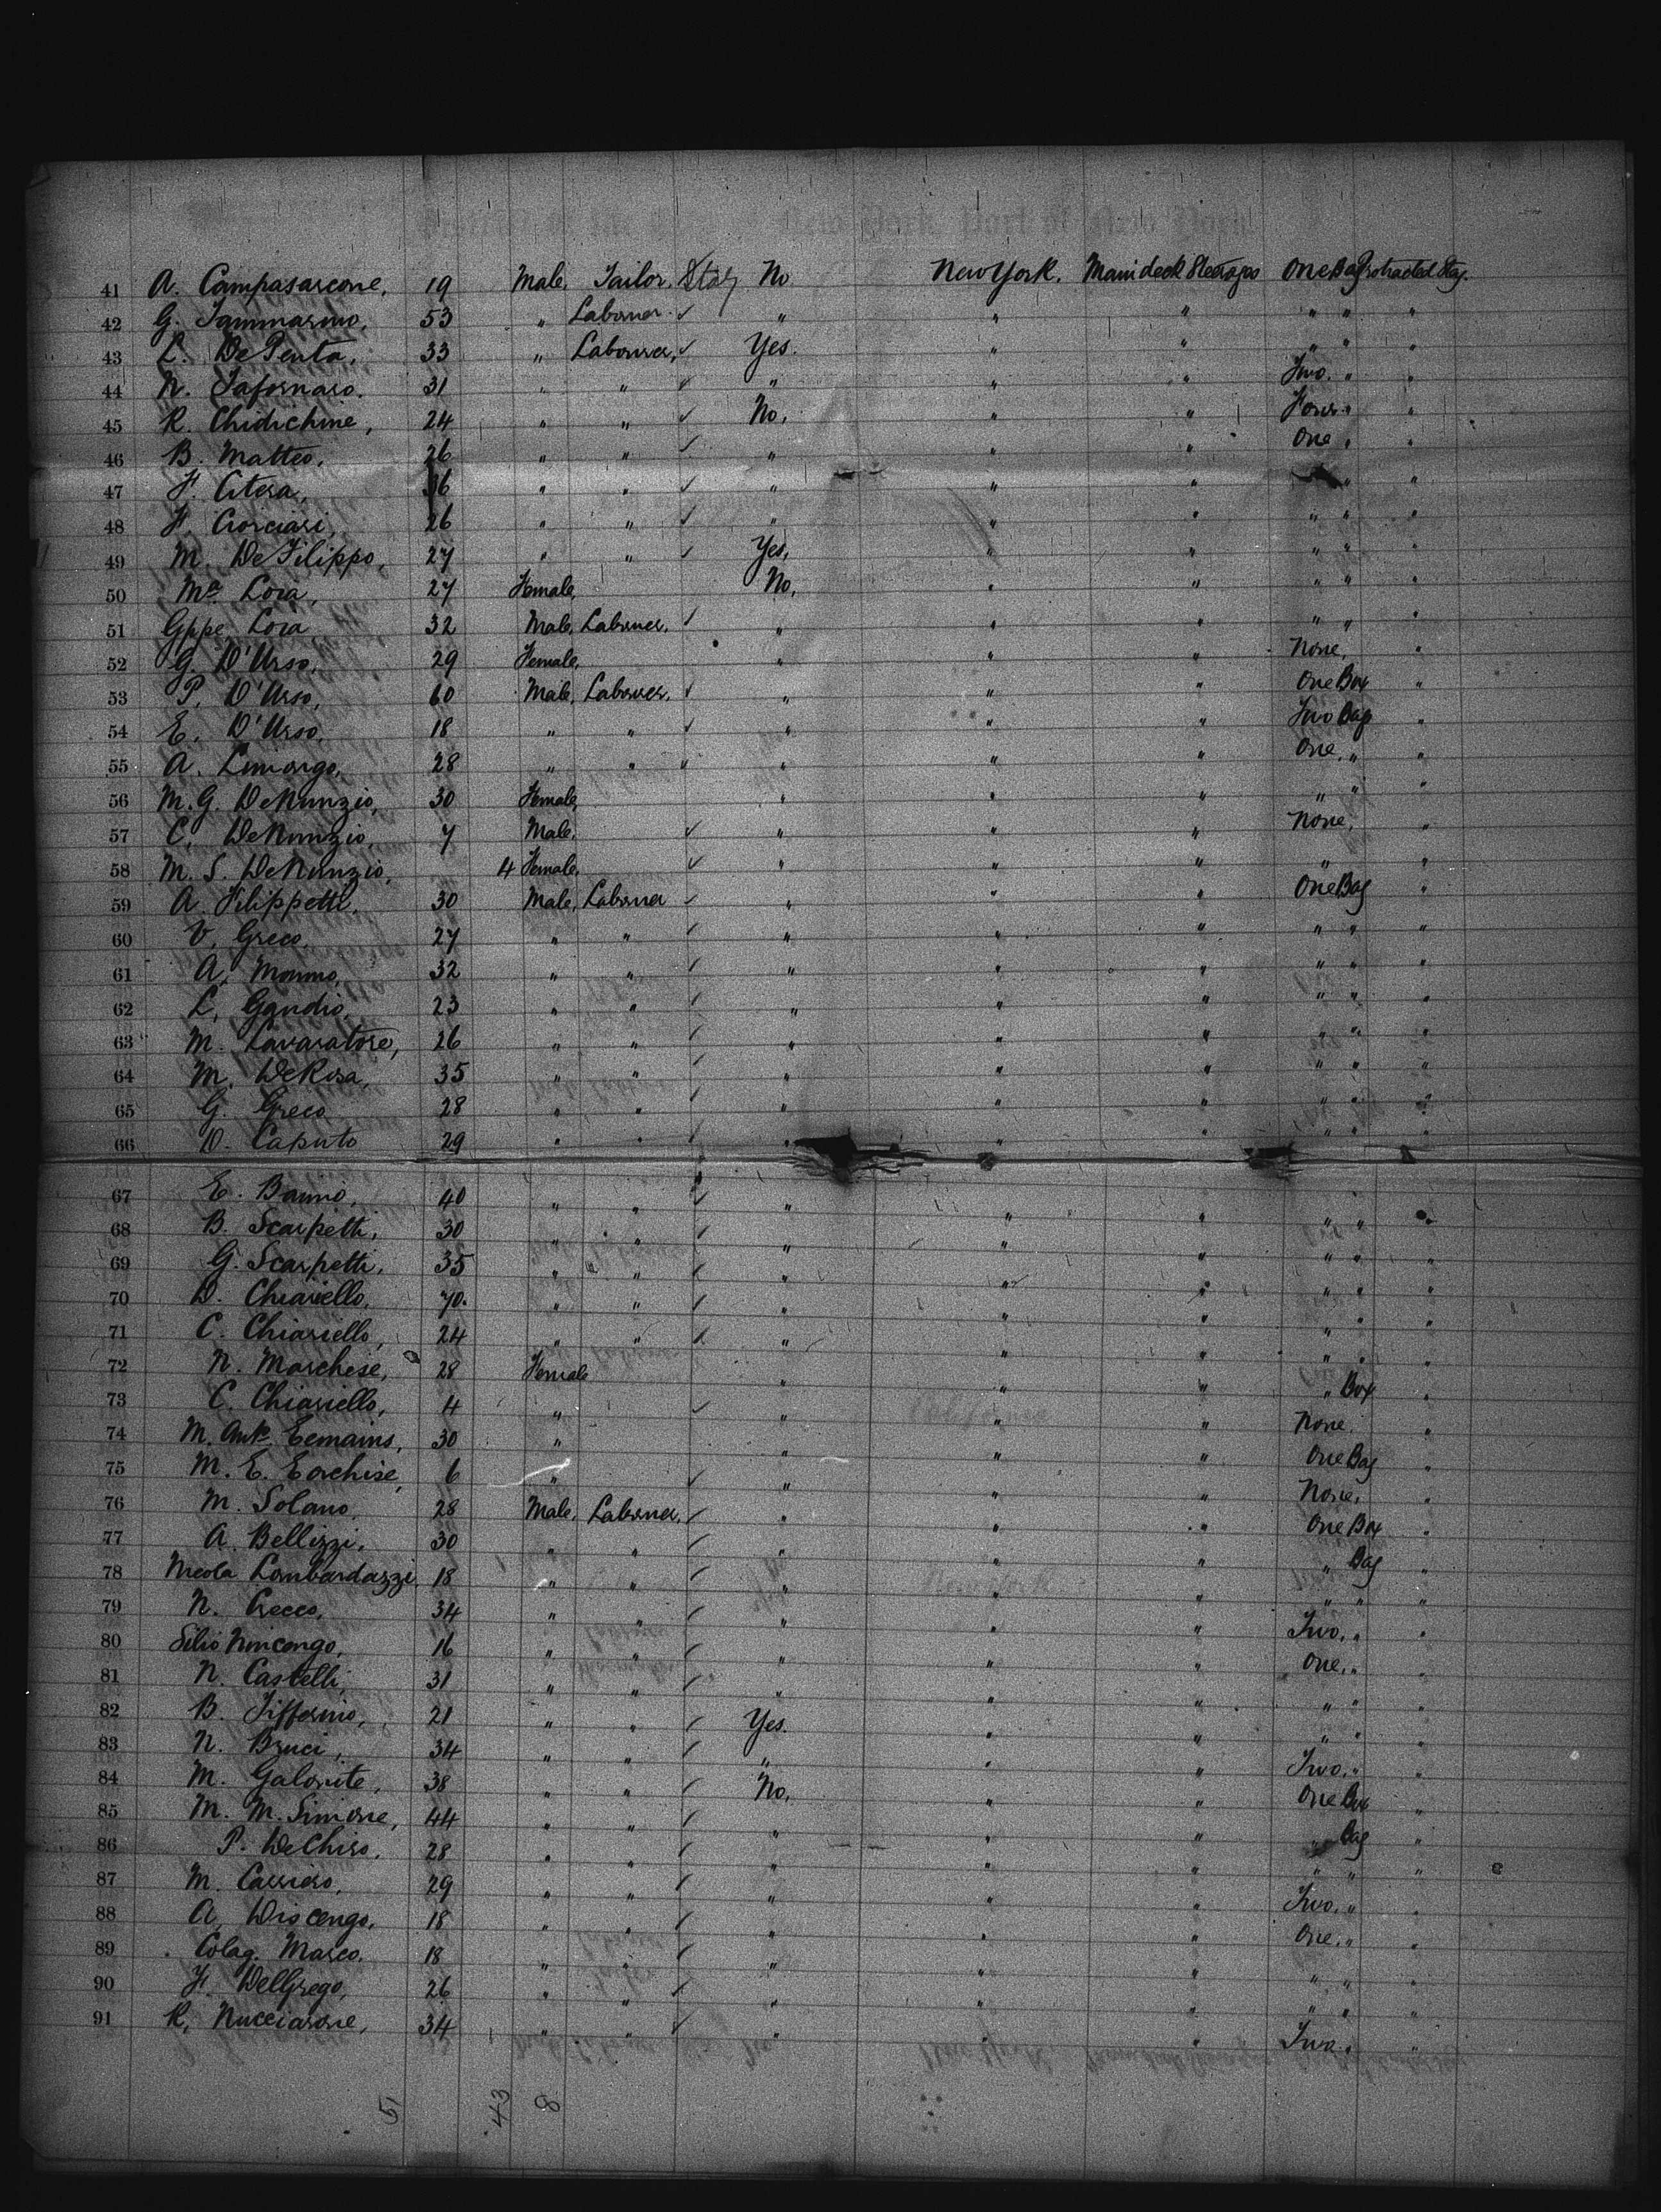 41 A. Campasarcone, 19 Male, Tailor, Italy No New York. Main deck Steerages One Bag Protracted Stay.
42 G. Iammarino, 53 " Labourer. " " " " " "
43 L. DePenta, 33 " Labourer, Yes. " " " " "
44 N. Tafornaro. 31 " " " " " Two. " "
45 R. Chidichine, 24 " " No, " " Four " "
46 B. Matteo, 26 " " " " " One " "
47 F. Citera, " " " " " " "
48 F. Ciorciari, 26 " " " " " " " "
49 M. DeFilippo, 27 " " Yes, " " " " "
50 Ma Lora, 27 Female, No, " " " " "
51 Gppe Lora 32 Male, Labourer, " " " " " "
52 G. D'Urso, 29 Female, " " " None, "
53 P. D'Urso, 60 Male, Labourer, " " " One Box "
54 E. D'Urso, 18 " " " " " Two Bags "
55 A. Limongo, 28 " " " " " One, " "
56 M. G. DeNunzio, 30 Female, " " " " " "
57 C. DeNunzio, 7 Male, " " " None, "
58 M. S. DeNunzio, 4 Female, " " " " "
59 A. Filippetti, 30 Male, Labourer " " " One Bag "
60 V. Greco, 27 " " " " " " " "
61 A. Mommo, 32 " " " " " " " "
62 L. Gandio, 23 " " " " " " " "
63 M. Lavaratore, 26 " " " " " " " "
64 M. DeRosa, 35 " " " " " " " "
65 G. Greco 28 " " " " " " " "
66 D. Caputo 29 " " " " " " " "
67 E. Banno, 40 " " " " " " "
68 B. Scarpetti, 30 " " " " " " " "
69 G. Scarpetti, 35 " " " " " " " "
70 D. Chiariello, 70. " " " " " " " "
71 C. Chiariello, 24 " " " " " " " "
72 N. Marchese, 28 Female " " " " Box "
73 C. Chiariello, 4 " " " " None. "
74 M. Anta 30 " " " " One Bag "
75 M. E. Eorchise, 6 " " " " None, "
76 M. Solano, 28 Male, Labourer, " " " One Box "
77 A. Bellizzi, 30 " " " " " " Bag "
78 Nicola Lombardazzi 18 " " " " " " " "
79 N. Crecco, 34 " " " " " Two, " "
80 Silio Nincongo, 16 " " " " " One, " "
81 N. Castelli, 31 " " " " " " " "
82 B. Tifferino, 21 " " Yes. " " " " "
83 N. Bruci, 34 " " " " " Two, " "
84 M. Galonite, 38 " " No, " " One Box "
85 M. M. Simone, 44 " " " " " " Bag "
86 P. DeChiro, 28 " " " " " " " "
87 M. Carriero, 29 " " " " " Two, " "
88 A. Discengo, 18 " " " " " One, " "
89 Colag. Marco. 18 " " " " " " " "
90 F. DelGrego, 26 " " " " " " " "
91 R. Nucciarone, 34 " " " " " Two " "
51 43 8